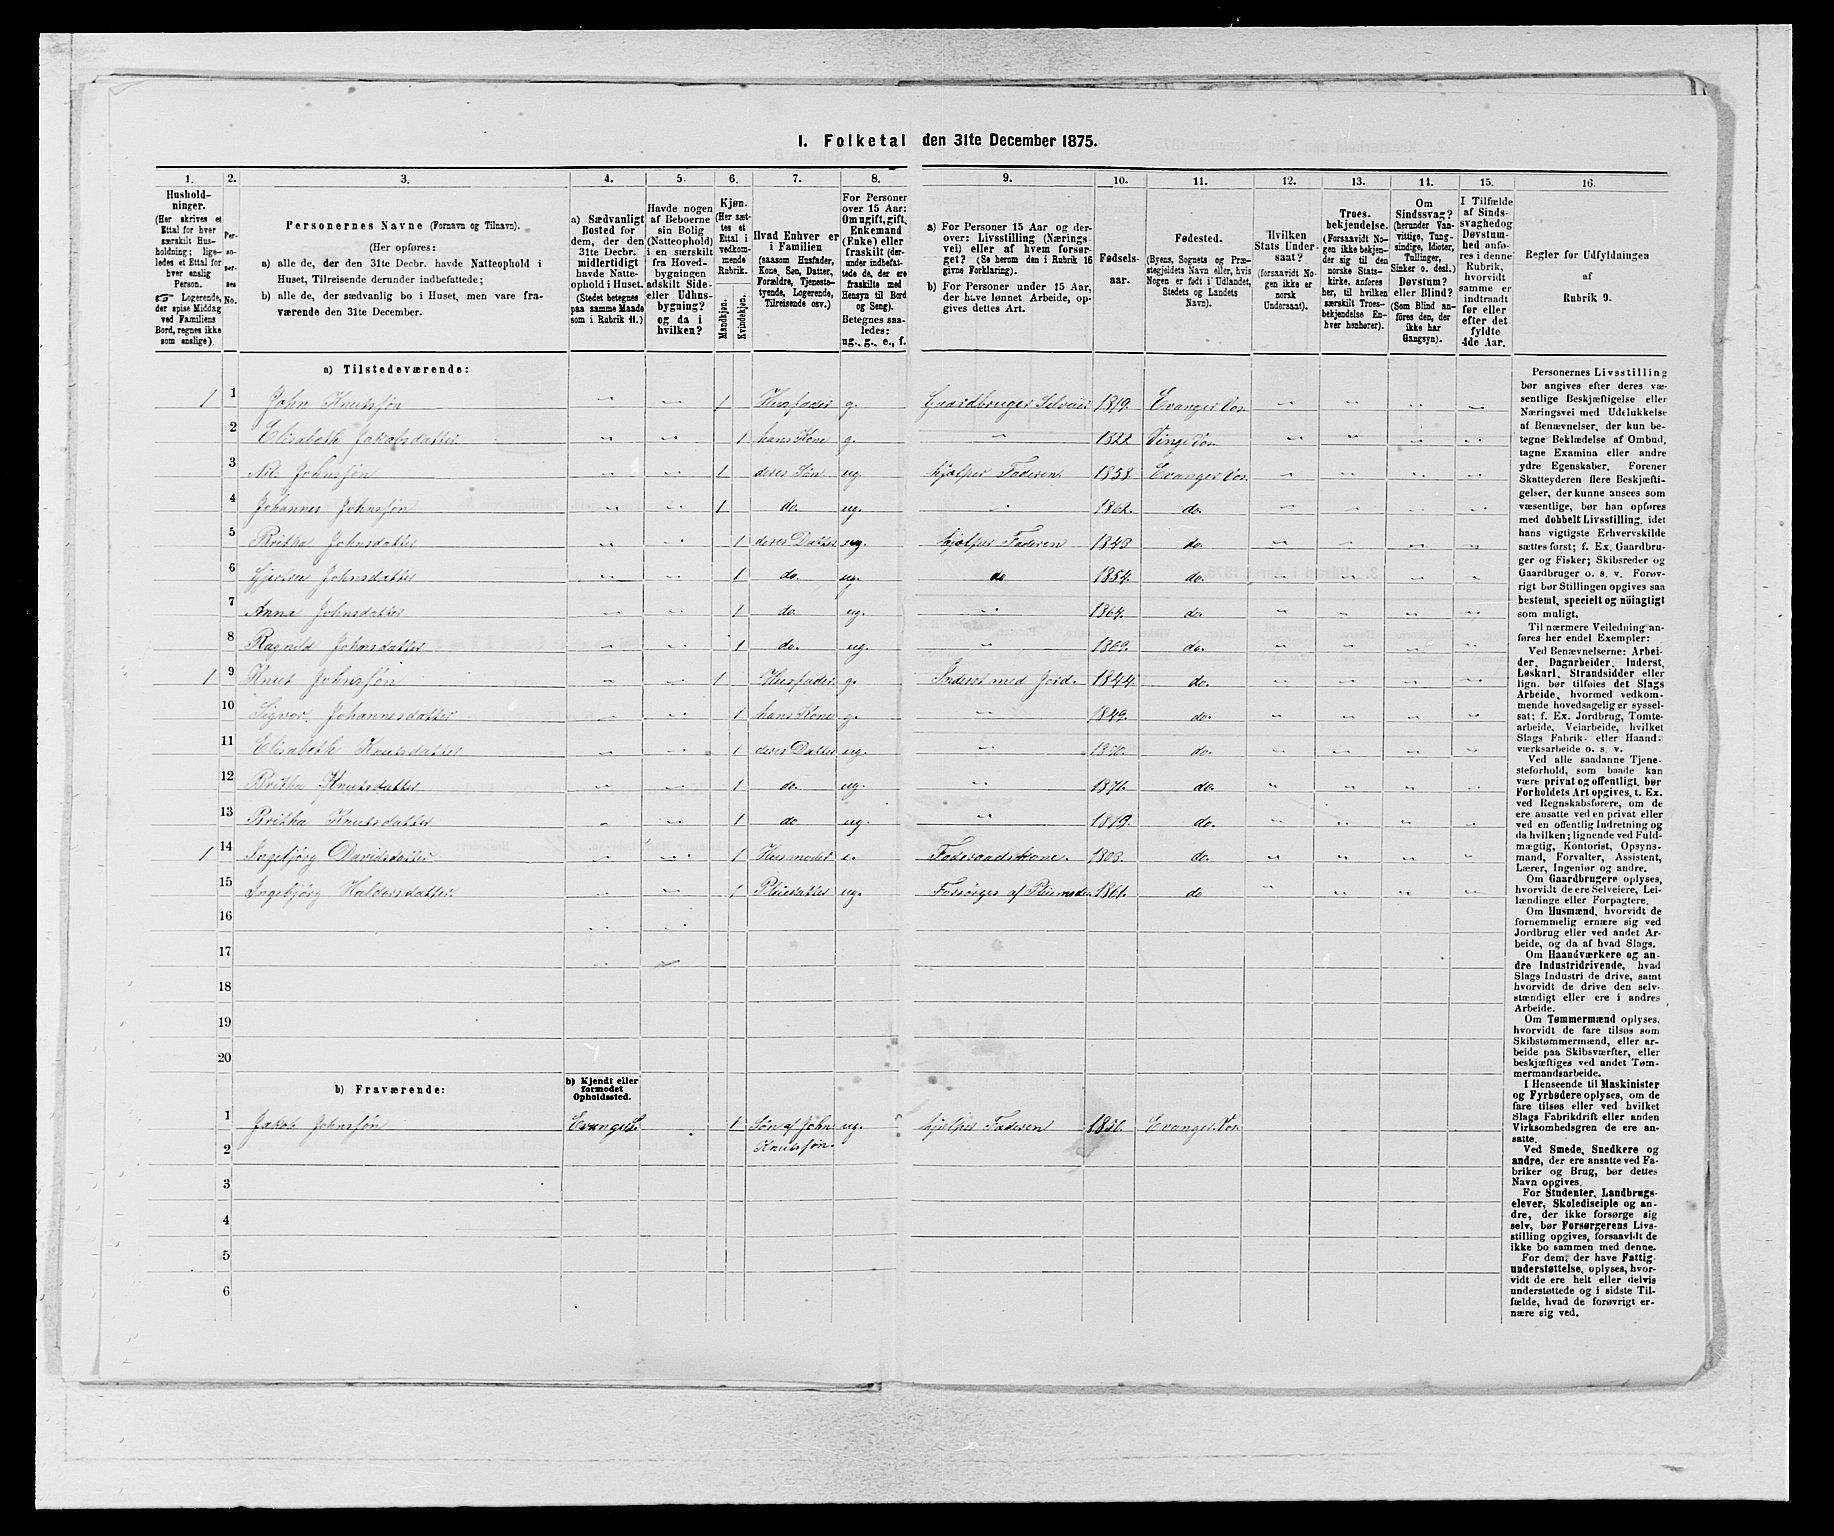 1. Folketal den 31te December 1875.
1. 2. 3. 4. 5. 6. 7. 8. 9. 10. 11. 12. 13. 14. 15. 16.
Hushold-
ninger.
(Her skrives et
Ettal for hver
særskilt Hus-
holdning; lige-
ledes et Ettal for
hver enslig
Person.
☞ Logerende,
der spise Middag
ved Familiens
Bord, regnes ikke
som enslige).
Per-
so-
ner-
nes
No.
Personernes Navne (Fornavn og Tilnavn).
(Her opføres:
a) alle de, der den 31te Decbr. havde Natteophold i
Huset, Tilreisende derunder indbefattede;
b) alle de, der sædvanlig bo i Huset, men vare fra-
værende den 31te December.
a) Sædvanligt
Bosted for
dem, der den
31te Decbr.
midlertidigt
havde Natte-
ophold i Huset.
(Stedet betegnes
paa samme Maade
som i Rubrik 11.)
Havde nogen
af Beboerne
sin Bolig
(Natteophold)
i en særskilt
fra Hoved-
bygningen
adskilt Side-
eller Udhus-
bygning?
og da i
hvilken?
Kjøn.
(Her sæt-
tes et
Ettal i
vedkom-
mende
Rubrik.
Mandkjøn.
Kvindekjøn.
Hvad Enhver er
i Familien
(saasom Husfader,
Kone, Søn, Datter,
Forældre, Tjeneste-
tyende, Logerende,
Tilreisende osv.)
For Personer
over 15 Aar:
Om ugift, gift,
Enkemand
(Enke) eller
fraskilt (der-
under indbefat-
tede de, der ere
fraskilte med
Hensyn til Bord
og Seng).
Betegnes saa-
ledes:
ug., g., e., f.
a) For Personer 15 Aar og der-
over: Livsstilling (Nærings-
vei) eller af hvem forsør-
get? (Se herom den i Rubrik 16
givne Forklaring).
b) For Personer under 15 Aar,
der have lønnet Arbeide, op-
gives dettes Art.
Fødsels-
aar.
Fødested.
(Byens, Sognets og Præ-
stegjeldets Navn eller, hvis
Nogen er født i Udlandet,
Stedets og Landets
Navn).
Hvilken
Stats Under-
saat?
(forsaavidt No-
gen ikke er
norsk
Undersaat).
Troes-
bekjendelse.
(Forsaavidt No-
gen ikke bekjen-
der sig til den
norske Stats-
kirke, anføres
her, til hvilken
særskilt Troes-
bekjendelse En-
hver henhører).
Om
Sindssvag?
(herunder Van-
vittige, Tung-
sindige, Idioter,
Sinker o. desl.)
Døvstum?
eller Blind?
(Som Blind an-
føres den, der
ikke har
Gangsyn).
I Tilfælde
af Sinds-
svaghed og
Døvstum-
hed anfø-
res i denne
Rubrik,
hvorvidt
samme er
indtraadt
før eller
efter det
fyldte
4de Aar.
Regler for Udfyldningen
af
Rubrik 9.
a) Tilstedeværende:
1 1 John Knutssøn 1 Husfader g. Gaardbruger Selveier 1819. Evanger Vos.
2 Elisabeth Jakobsdatter 1 hans Kone g. 1822. Vinge Vos.
3 Nils Johnssøn 1 deres Søn ug. hjælper Faderen 1858. Evanger Vos.
4 Johannes Johnssøn 1 do. ug. 1862. do.
5 Britha Johnsdatter 1 deres Datter ug. hjælper Faderen 1843. do.
6 Gjertru Johnsdatter 1 do. ug. do 1854. do.
7 Anna Johnsdatter 1 do. ug. 1864. do.
8 Ragnild Johnsdatter 1 do. ug. 1869. do.
1 9 Knut Johnssøn 1 Husfader g. Inderst med Jord. 1844. do.
10 Sigvor Johannesdatter 1 hans Kone g. 1849. do.
11 Elisabeth Knutsdatter 1 deres Datter ug. 1870. do.
12 Britha Knutsdatter 1 do. ug. 1871. do.
13 Britha Knutsdatter 1 do ug. do.
1 14 Ingebjørg Davidsdatter 1 Husmoder e. Føderaadskone. 1803. do.
15 Ingebjørg Haldorsdatter 1 Pleiedatter ug. Forsørges af Pleiemoder 1861. do
16
17
18
19
20
b) Fraværende:
b) Kjendt eller
formodet
Opholdssted.
1 Jakob Johnssøn 1 Søn af John ug. hjelper Faderen 1856. Evanger Vos.
2 Knutssøn.
3
4
5
6
Personernes Livsstilling
bør angives efter deres væ-
sentlige Beskjæftigelse eller
Næringsvei med Udelukkelse
af Benævnelser, der kun be-
tegne Beklædelse af Ombud,
tagne Examina eller andre
ydre Egenskaber. Forener
Skatteyderen flere Beskjæfti-
gelser, der kunne ansees som
væsentlige, bør han opføres
med dobbelt Livsstilling, idet
hans vigtigste Erhvervskilde
sættes først; f. Ex. Gaardbru-
ger og Fisker; Skibsreder og
Gaardbruger o. s. v. Forøv-
rigt bør Stillingen opgives saa
bestemt, specielt og nöiagtigt
som muligt.
Til nærmere Veiledning an-
føres her endel Exempler:
Ved Benævnelserne: Arbei-
der, Dagarbeider, Inderst,
Løskarl, Strandsidder eller
lign. bør tilføies det Slags
Arbeide, hvormed vedkom-
mende hovedsagelig er syssel-
sat; f. Ex. Jordbrug, Tomte-
arbeide, Veiarbeide, hvilket
Slags Fabrik- eller Haand-
værksarbeide o. s. v.
Ved alle saadanne Tjene-
steforhold, som baade kan
være privat og offentligt, bør
Forholdets Art opgives, t. Ex.
ved Regnskabsførere, om de
ere ansatte ved en privat eller
ved en offentlig Indretning og
da hvilken; lignende ved Fuld-
mægtig, Kontorist, Opsyns-
mand, Forvalter, Assistent,
Lærer, Ingeniør og andre.
Om Gaardbrugere oplyses,
hvorvidt de ere Selveiere, Lei-
lændinge eller Forpagtere.
Om Husmænd, hvorvidt de
fornemmelig ernære sig ved
Jordbrug eller ved andet Ar-
beide, og da af hvad Slags.
Om Haandværkere og an-
dre Industridrivende, hvad
Slags Industri de drive, samt
hvorvidt de drive den selv-
stændigt eller ere i andres
Arbeide.
Om Tømmermænd oplyses,
hvorvidt de fare tilsøs som
Skibstømmermænd, eller ar-
beide paa Skibsværfter, eller
beskjæftiges ved andet Tøm-
mermandsarbeide.
I Henseende til Maskinister
og Fyrbødere oplyses, om de
fare tilsøs eller ved hvilket
Slags Fabrikdrift eller anden
Virksomhedsgren de ere an-
satte.
Ved Smede, Snedkere og
andre, der ere ansatte ved Fa-
briker og Brug, bør dettes
Navn opgives.
For Studenter, Landbrugs-
elever, Skoledisciple og an-
dre, der ikke forsørge sig
selv, bør Forsørgerens Livs-
stilling opgives, forsaavidt de
ikke bo sammen med denne.
For dem, der have Fattig-
understøttelse, oplyses, hvor-
vidt de ere helt eller delvis
understøttede og i sidste Til-
fælde, hvad de forøvrigt er-
nære sig ved.